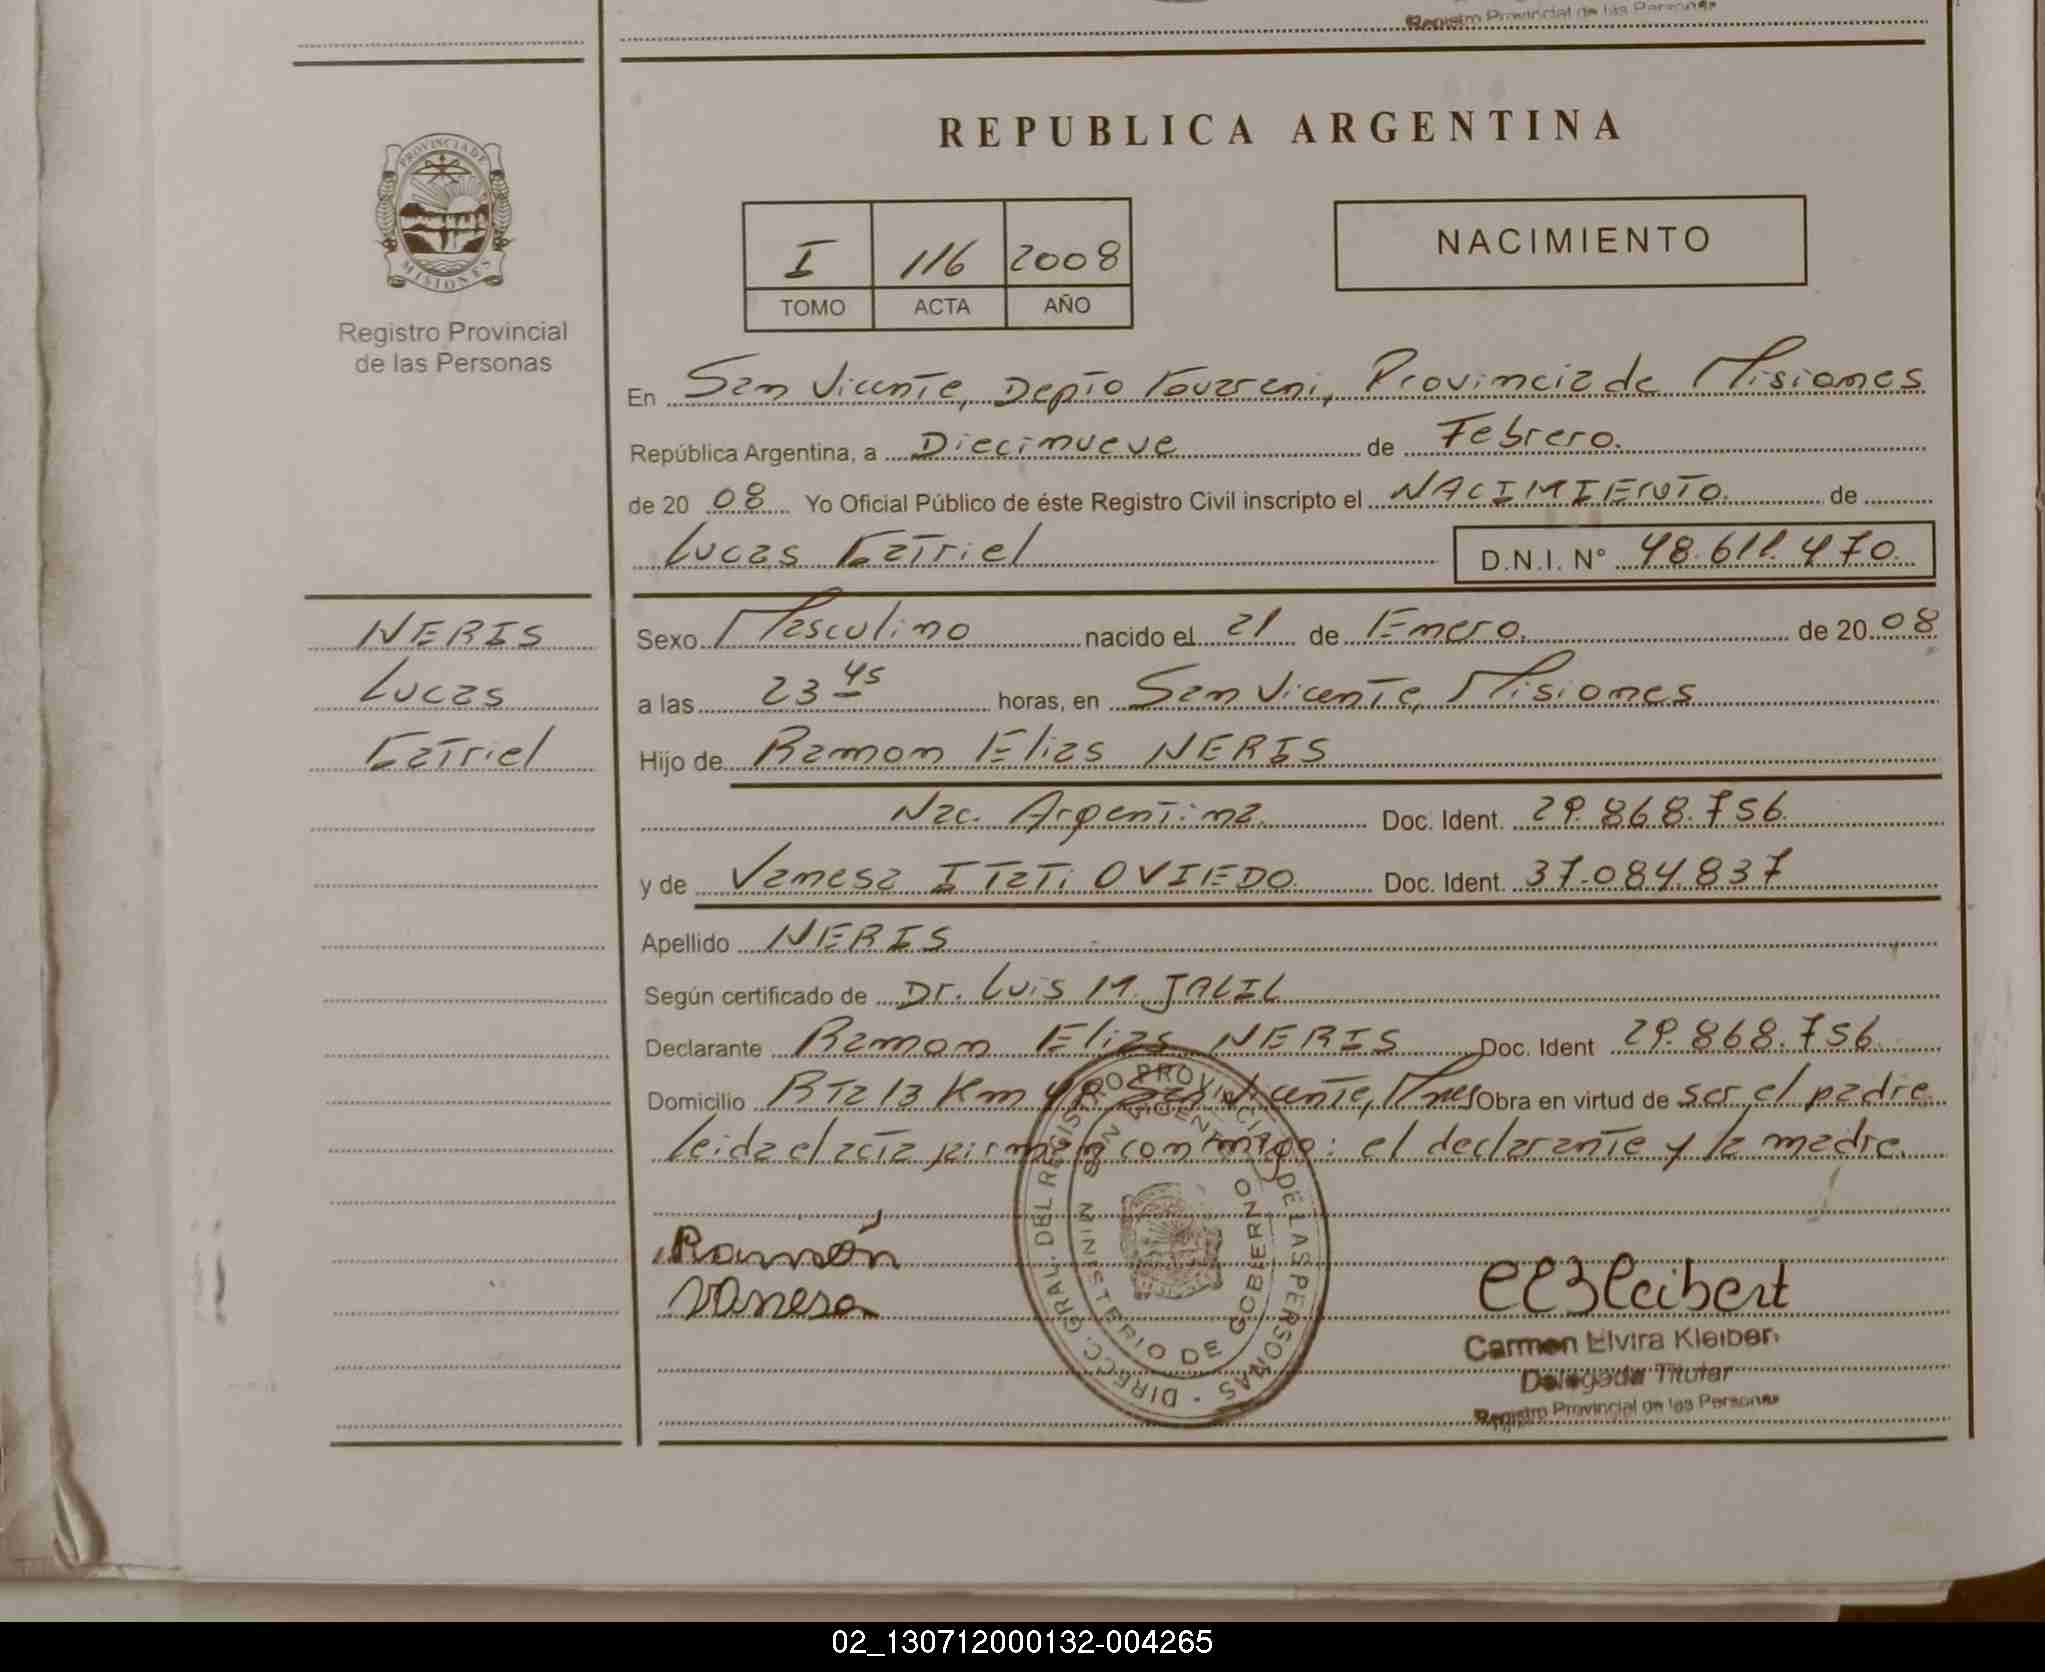 Registro Provincial de las Personas
REPUBLICA ARGENTINA
PROVINCIA DE
MISIONES
Registro Provincial
de las Personas
I 116 2008
TOMO ACTA AÑO
NACIMIENTO
En San Vicente, Depto Guarani, Provincia de Misiones
República Argentina, a Diecinueve de Febrero.
de 20 08 Yo Oficial Público de éste Registro Civil inscripto el NACIMIENTO de
Lucas Gatriel D.N.I. N° 48.611.470
NERIS
Lucas
Gatriel
Sexo Masculino nacido el 21 de Enero. de 20 08
a las 23 45 horas, en San Vicente, Misiones
Hijo de Ramon Elias NERIS
Nac. Argentina. Doc. Ident. 29.868.756
y de Vanesa ITaTi OVIEDO. Doc. Ident. 37.084.837
Apellido NERIS
Según certificado de Dr. Luis M. JALIL
Declarante Ramon Elias NERIS Doc. Ident 29.868.756
Domicilio RTa 13 Km San Vicente, Mnes Obra en virtud de ser el padre.
leida el acta firman conmigo: el declarante y la madre.
DIRECC. GRAL. DEL REGISTRO PROVINCIAL DE LAS PERSONAS
SAN VICENTE
MINISTERIO DE GOBIERNO
Ramón
Vanesa
Carmen Elvira Kleiber
Delegada Titular
Registro Provincial de las Personas
02_130712000132-004265